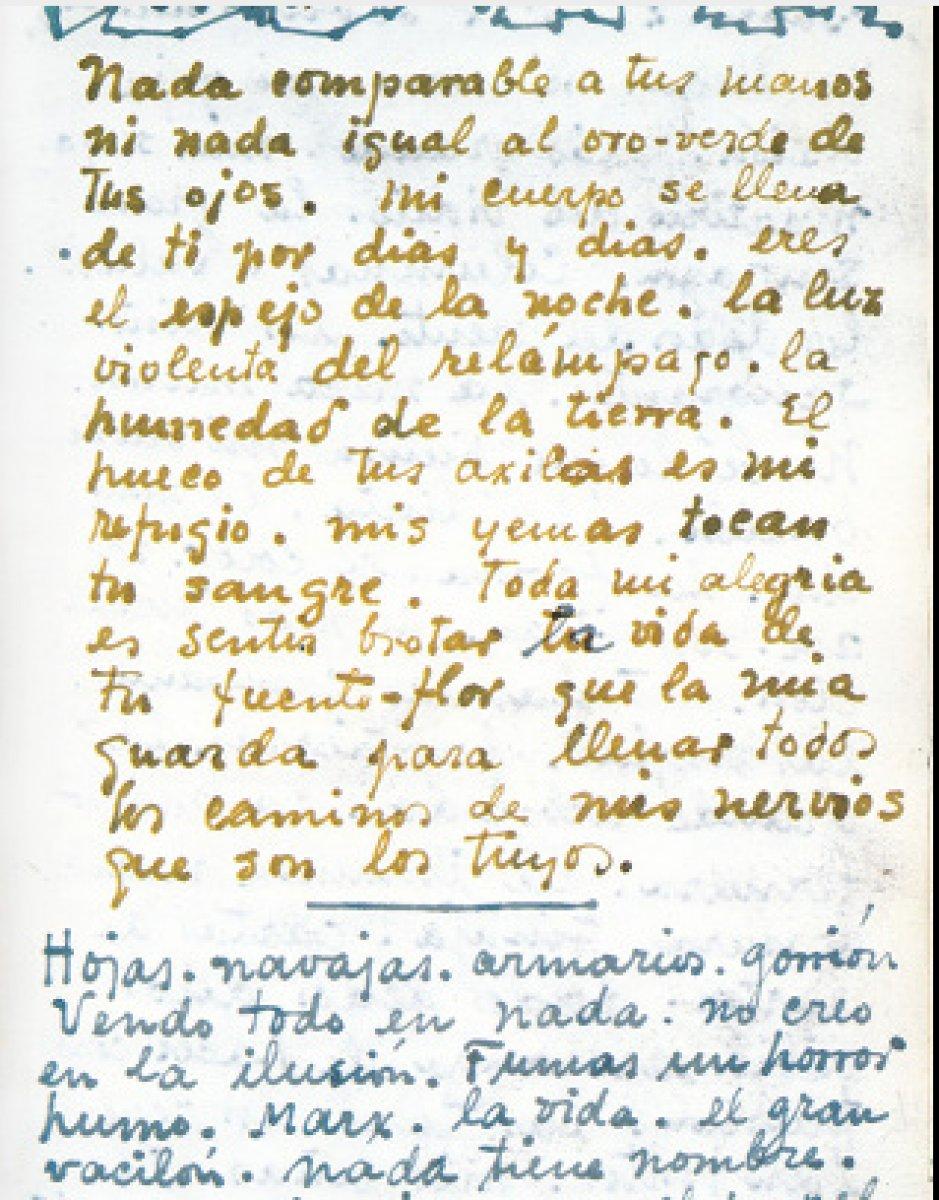 Nada comparable a tus manos
ni nada igual al oro-verde de
tus ojos. mi cuerpo se llena
de ti por dias y dias. eres
el espejo de la noche. la luz
violenta del relámpago. la
humedad de la tierra. El
hueco de tus axilas es mi
refugio. mis yemas tocan
tu sangre. Toda mi alegria
es sentir brotar la vida de
tu fuente-flor que la mia
guarda para llenar todos
los caminos de mis nervios
que son los tuyos.
Hojas. navajas. armarios. gorrión
Vendo todo en nada. no creo
en la ilusión. Fumas un horror
humo. Marx. la vida. el gran
vacilón. nada tiene nombre.